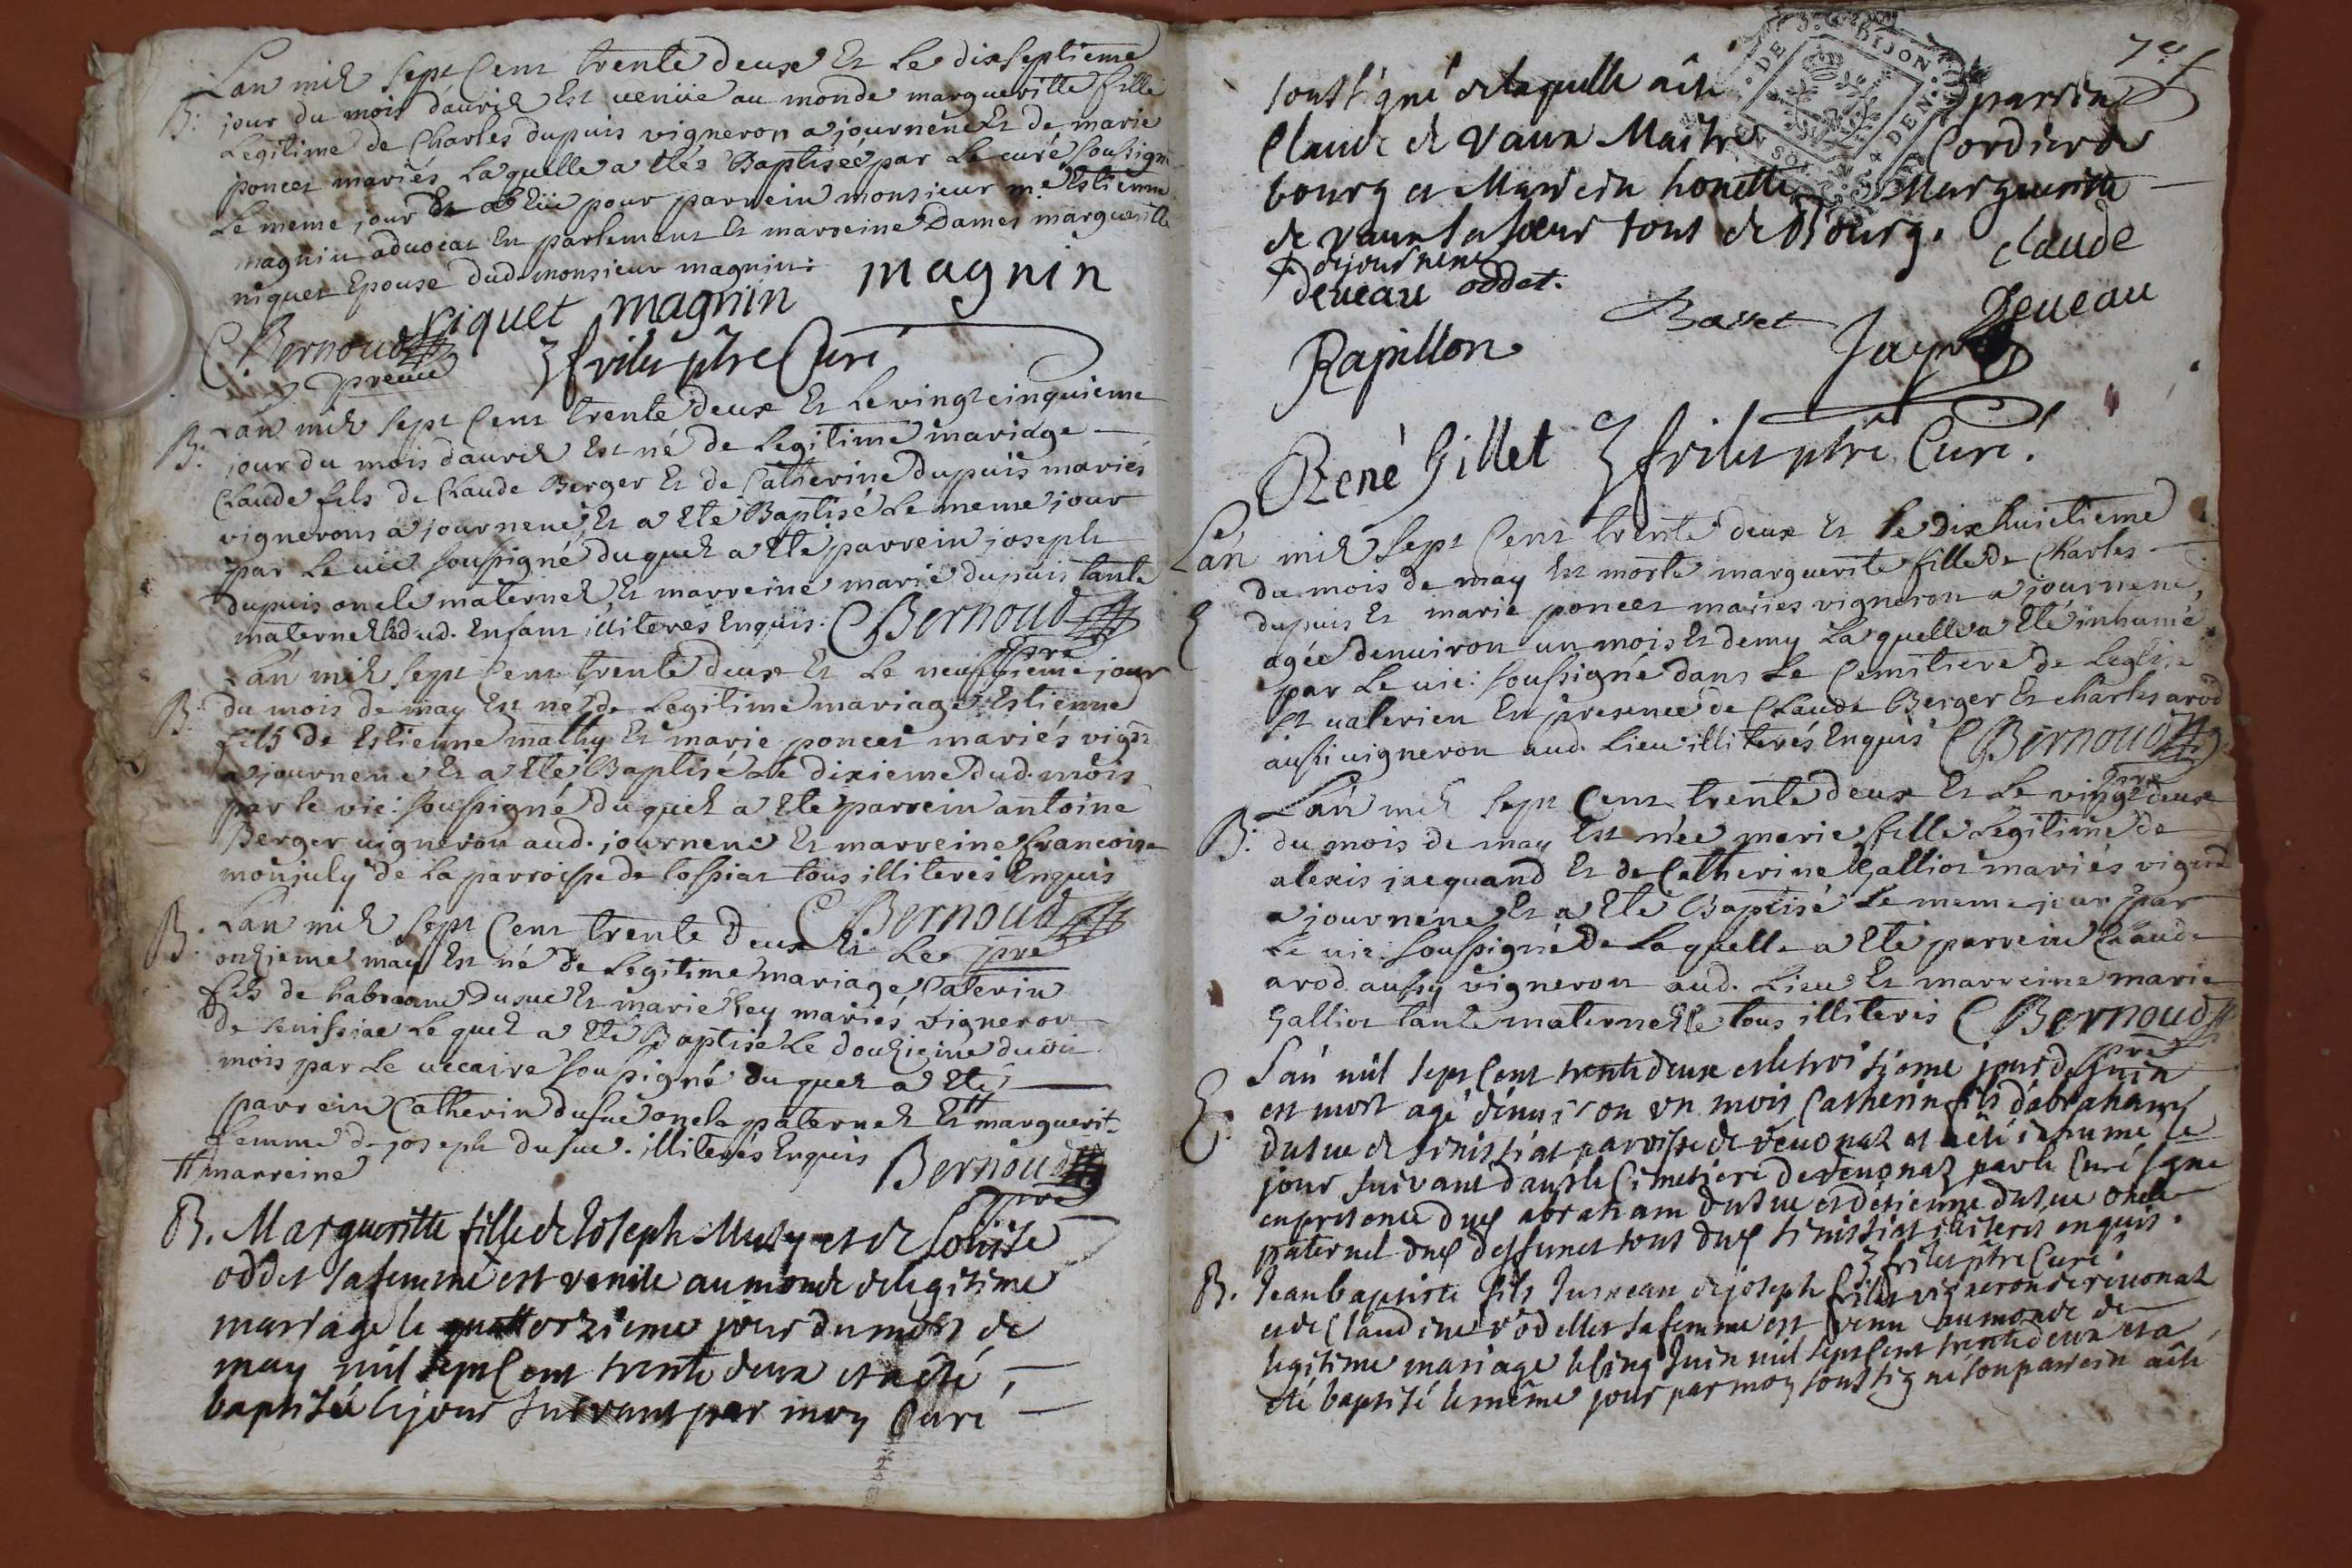 Lan mil sept Cent trente deux Et Le dixseptieme
B: jour du mois dauril Est venüe au monde margueritte fille
Legitime de Charles dupuis vigneron a journene Et de marie
poncet mariés Laquelle a étée Baptisée par Le curé soussigné
Le meme jour Et a Eü pour parrein monsieur me Estienne
magnin aduocat En parlement Et marreine Dames margueritte
niquet Epouse dud. monsieur magnin:
magnin
niquet magnin
C Bernoud
pre vic
frilet ptre Curé
B: Lan mil sept Cent trente deux Et Le vingt cinquieme
jour du mois dauril Est né de Legitime mariage
Claude fils de Claude Berger Et de Catherine Dupuis mariés
vignerons a journene, Et a Eté Baptisé Le meme jour
par Le vic: soussigné duquel a Eté parrein joseph
dupuis oncle maternel Et marreine marie dupuis tante
maternelle dud. Enfant illiterés Enquis. C Bernoud
pre
Lan mil sept Cent trente deux Et Le neufvieme jour
B: du mois de may Est né de Legitime mariage Estienne
fils de Estienne mathy Et marie poncet mariés vign
a journene Et a Eté Baptisé Le dixieme dud. mois
par le vic: soussigné duquel a Eté parrein antoine
Berger vigneron aud. journene Et marreine francoise
monjuly de La parroisse de tossiat tous illiterés Enquis
C Bernoud
pre
B: Lan mil sept Cent trente Deux Et Le
onzieme may Est né de Legitime mariage Caterin
fils de habraam Dusue Et marie Rey mariés vigneron
de senissiac Le quel a Eté Baptisé Le douzieme du
mois par Le vicaire soussigné duquel a Eté
parrein Catherin dusue oncle paternel Et # marguerite
femme de joseph dusue. illiterés Enquis
# marreine
Bernoud
pre
B. Margueritte fille de Joseph Muty et de Louise
oddet sa femme est venüe au monde de legitime
mariage le quattorzieme jour du mois de
may mil sept Cent trente deux et a été
baptisée le jour suivant par moy Curé
7e
soussigné de laquelle a été parrein
Claude de Vaux Maitre Cordier de
bourg et Marein honette Margueritte
de vaux sa soeur tous de Bourg.
de journene
deueau oddet.
claude
Deueau
Basset
Rapillon
Jayr
René Gillet frilet ptre Curé.
Lan mil sept Cent trente deux Et Le Dix huictieme
du mois de may Est morte marguerite fille de Charles
dupuis Et marie poncet mariés vigneron a journene,
E agée denuiron un mois Et demy Laquelle a Eté inhumé
par Le vic: soussigné dans Le Cemitiere de Leglise
St valerien En presence de Claude Berger Et charles arod
aussi vigneron aud. Lieu illiterés Enquis C Bernoud
pre
Lan mil sept Cent trente deux Et Le vingt deux
B: du mois de may Est née marie fille Legitime de
alexis jacquand Et de Catherine Galliot mariés vigne
a journene Et a Eté Baptisé Le meme jour par
Le vic: soussigné De Laquelle a Eté parrein Claude
arod aussy vigneron aud. Lieu Et marreine marie
Galliot tante maternelle tous illiterés C Bernoud
pre
Lan mil sept Cent trente deux et le troisieme jour de Juin
E. est mort agé denuiron un mois Catherin fils dabraham
dusue de senissiat parroisse de reuonaz et a été inhumé le
jour suivant dans le Cimetiere de reuonaz par le Curé signé
en presence dud abraham dusue et detienne dusue oncle
paternel dud deffunct tous dud senissiat illiterés enquis.
frilet ptre Curé.
B. Jean baptiste fils Jumeau de joseph frilet vigneron de reuonaz
et de Claudine sa femme est venu au monde de
legitime mariage le cinq Juin mil sept Cent trente deux et a
ete baptisé le même jour par moy soussigné son parrein a été
DE DIJON